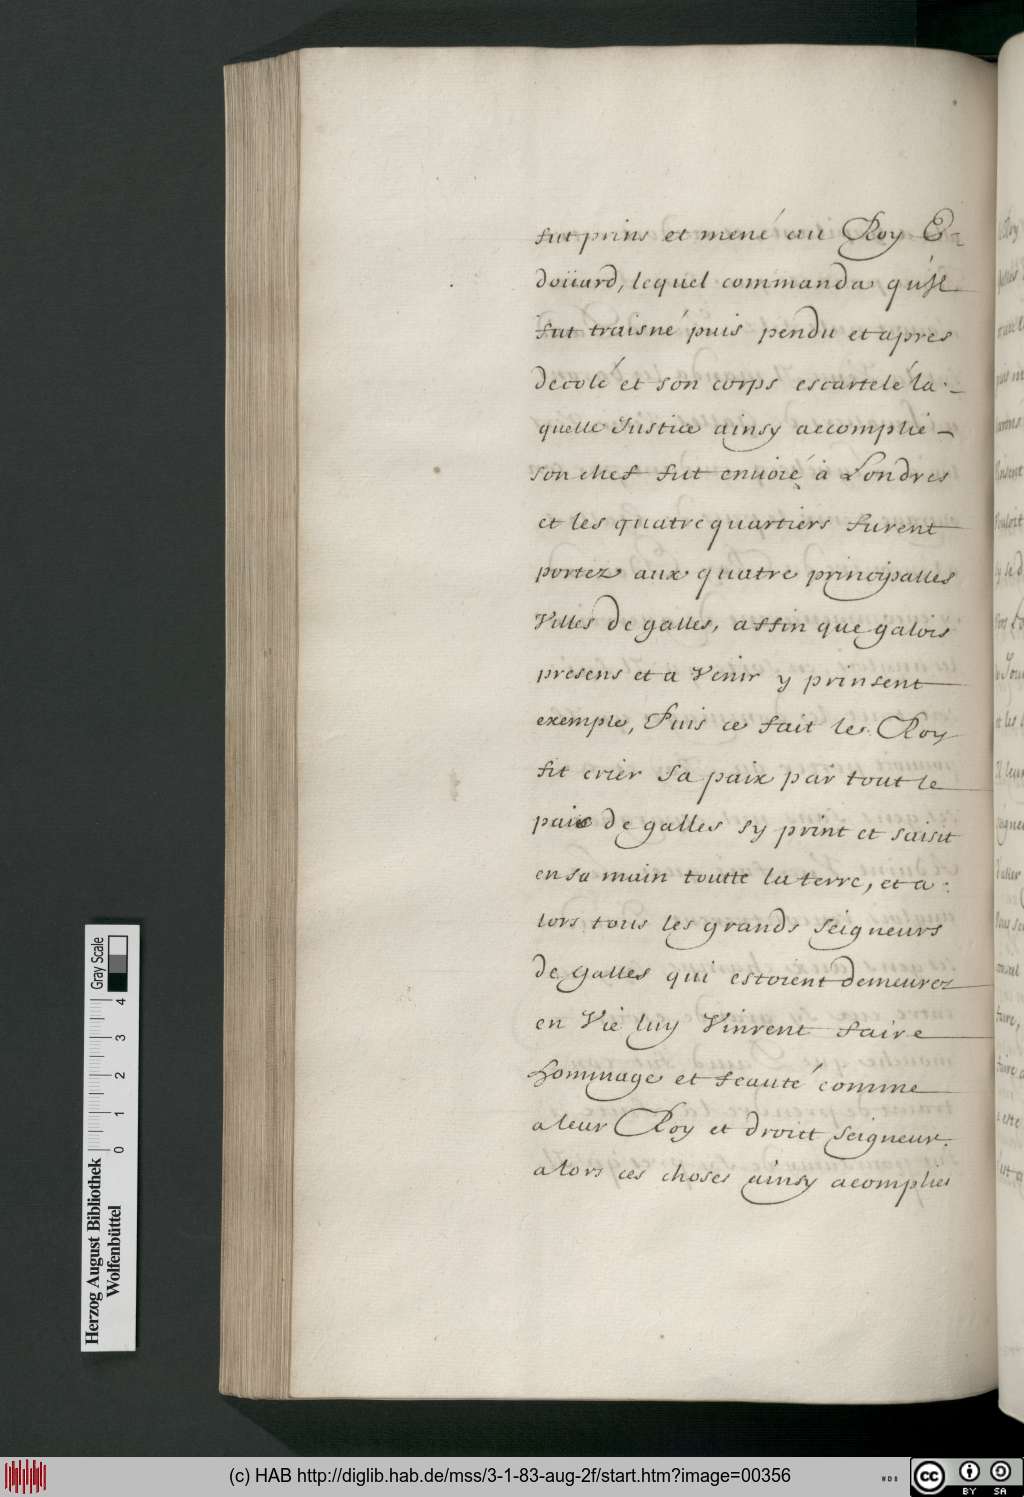 fut prins et mené au Roy E-
doüard, lequel commanda qu'Il
fut traisné puis pendu et apres
decolé et son corps escartelé la-
quelle Justice ainsy accomplie
son chef fut enuoié à Londres
et les quatre quartiers furent
portez aux quatre principalles
Villes de galles, affin que galois
presens et a Venir y prinsent
exemple, Puis ce fait le Roy
fit crier sa paix par tout le
pais de galles sy print et saisit
en sa main toutte la terre, et a-
lors tous les grands seigneurs
de galles qui estoient demeurez
en Vie luy Vinrent faire
hommage et feauté comme
a leur Roy et droitt seigneur.
alors ces choses ainsy acomplies
Herzog August Bibliothek
Wolfenbüttel
0 1 2 3 4
Gray Scale
(c) HAB http://diglib.hab.de/mss/3-1-83-aug-2f/start.htm?image=00356
WDB
cc
BY SA